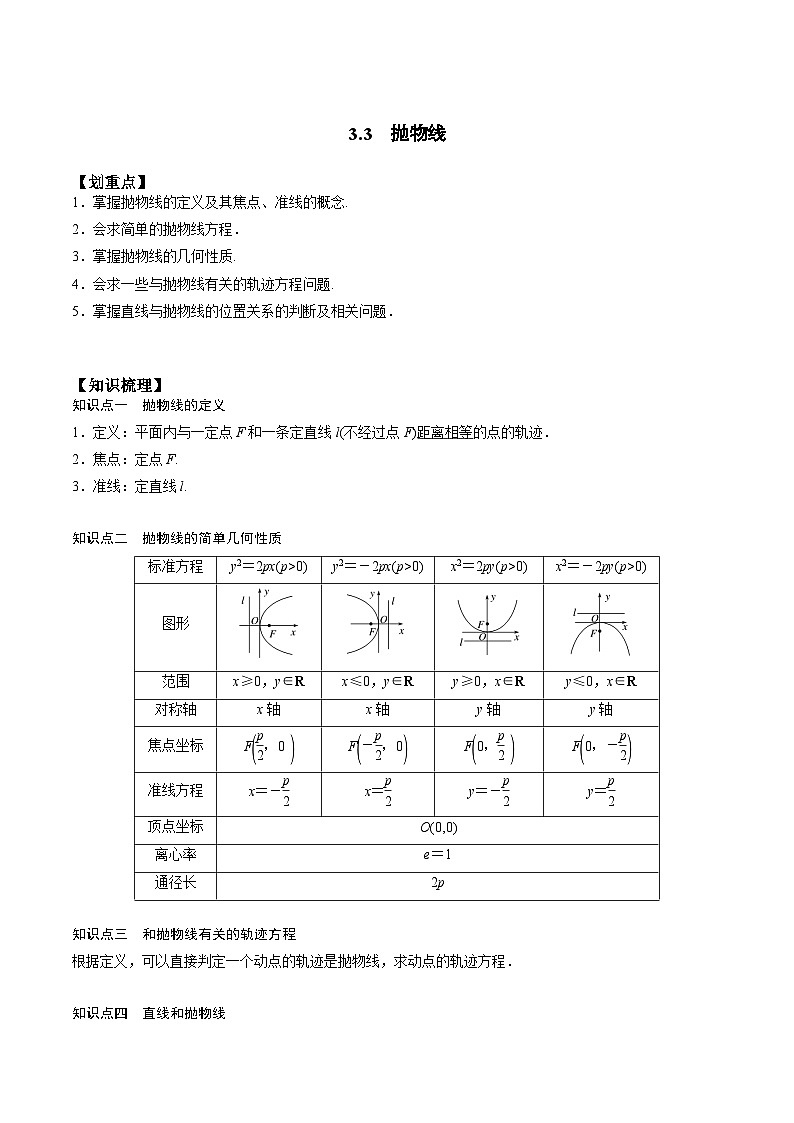 3.3　抛物线
【划重点】
1．掌握抛物线的定义及其焦点、准线的概念.
2．会求简单的抛物线方程．
3．掌握抛物线的几何性质.
4．会求一些与抛物线有关的轨迹方程问题.
5．掌握直线与抛物线的位置关系的判断及相关问题．
【知识梳理】
知识点一　抛物线的定义
1．定义：平面内与一定点F和一条定直线l(不经过点F)距离相等的点的轨迹．
2．焦点：定点F.
3．准线：定直线l.
知识点二　抛物线的简单几何性质
标准方程 y²＝2px(p>0) y²＝－2px(p>0) x²＝2py(p>0) x²＝－2py(p>0)
图形 l y O F x y l F O x y F O l x y l O F x
范围 x≥0，y∈R x≤0，y∈R y≥0，x∈R y≤0，x∈R
对称轴 x轴 x轴 y轴 y轴
焦点坐标 F(p/2，0) F(－p/2，0) F(0，p/2) F(0，－p/2)
准线方程 x＝－p/2 x＝p/2 y＝－p/2 y＝p/2
顶点坐标 O(0,0)
离心率 e＝1
通径长 2p
知识点三　和抛物线有关的轨迹方程
根据定义，可以直接判定一个动点的轨迹是抛物线，求动点的轨迹方程．
知识点四　直线和抛物线